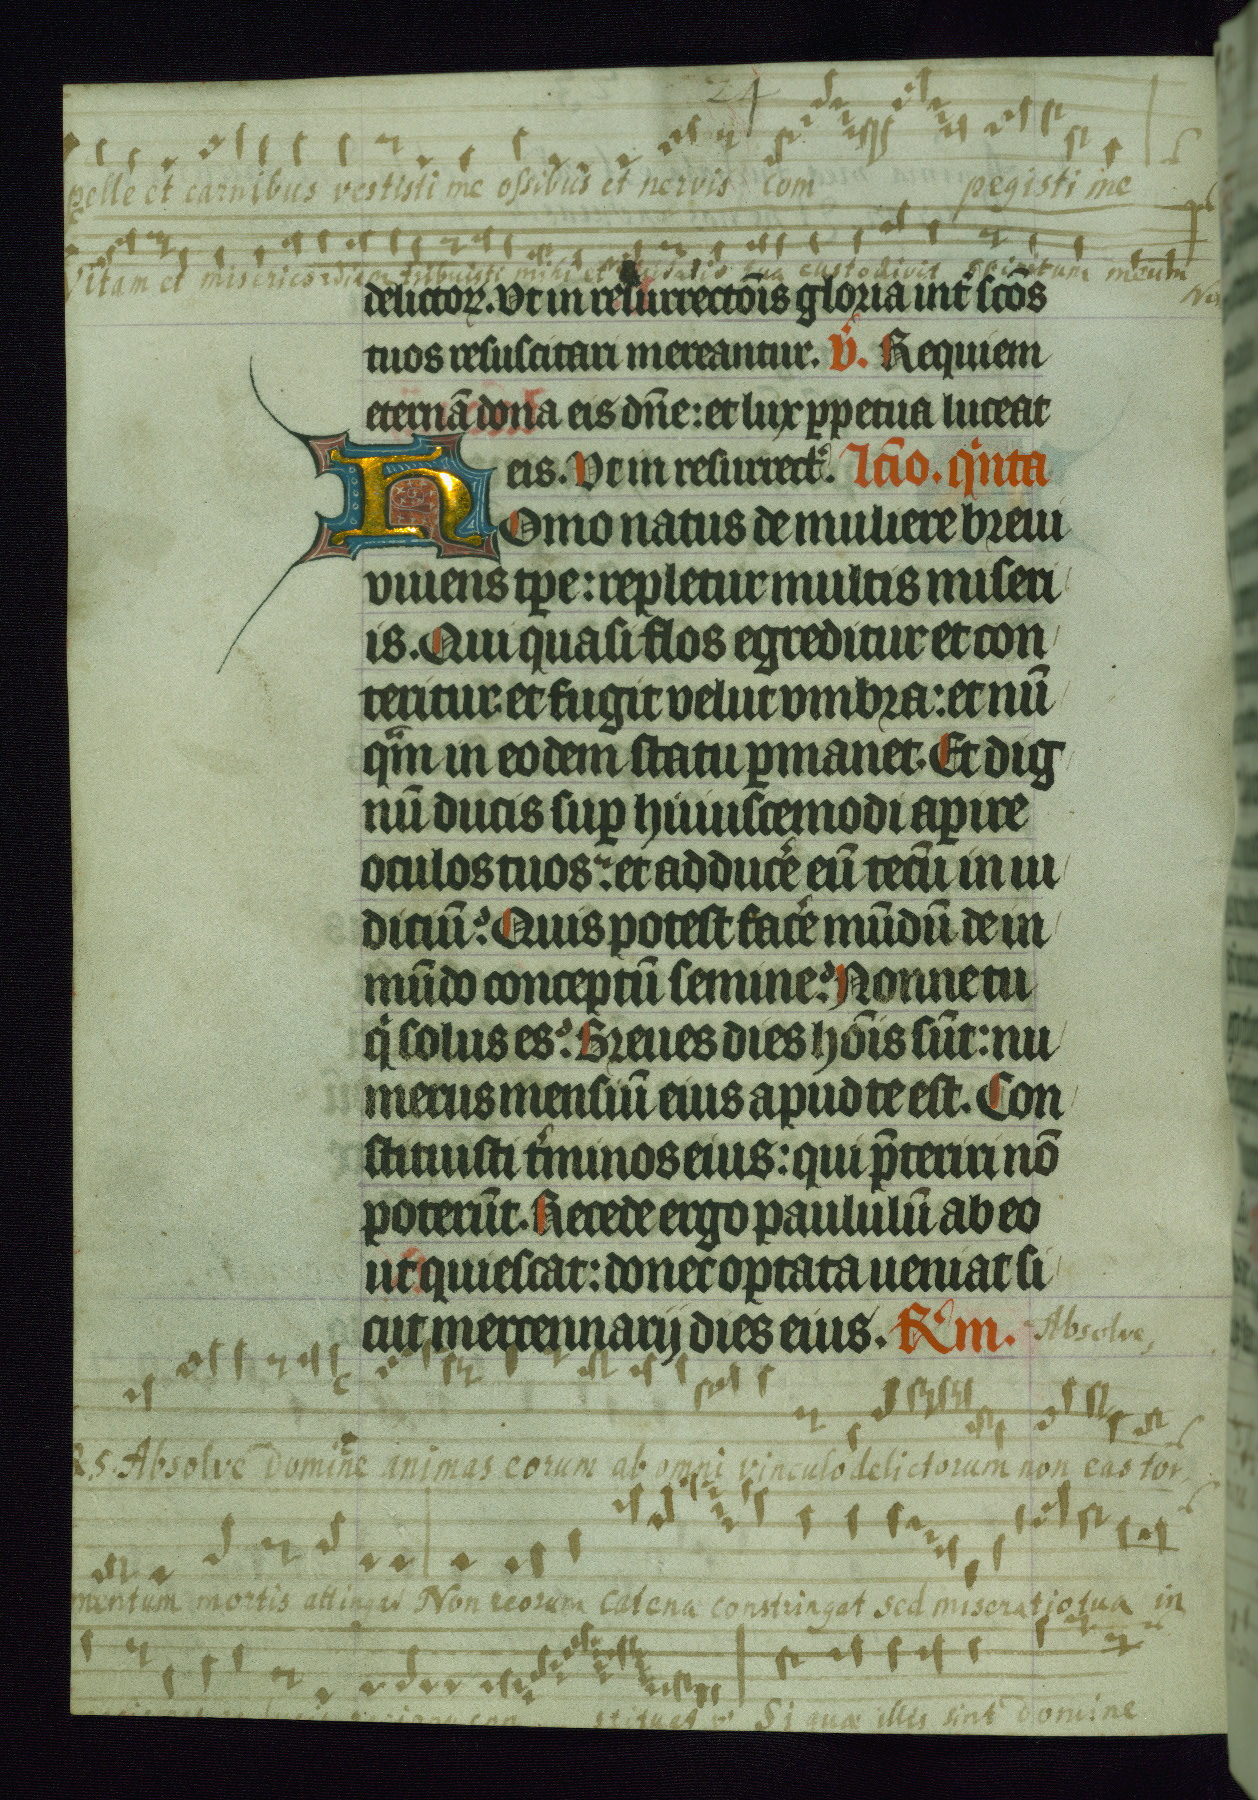 24
pelle et carnibus vestisti me ossibus et nervis com pegisti me
Vitam et misericordiam tribuisti mihi et tua custodivit spiritum meum
delictoꝝ. Vt in resurrectōis gloria int̄ scōs
tuos resuscitari mereantur. V̄. Requiem
eternā dona eis dn̄e: et lux ꝑpetua luceat
eis. Vt in resurrect. lcīo. qͥnta
Homo natus de muliere breui
viuens tꝑe: repletur multis miseri
is. Qui quasi flos egreditur et con
teritur: et fugit velut vmbra: et nū
qͣm in eodem statu ꝑmanet. Et dig
nū ducis suꝑ hiuuscemodi aꝑire
oculos tuos: et adducẽ eū tecū in iu
diciū? Quis potest facẽ mūdū de in
mūdo conceptū semine? Nonne tu
qͥ solus es? Breues dies hōis sūt: nu
merus mensiū eius apud te est. Con
stituisti tͥminos eius: qui p̄teriri nō
poterūt. Recede ergo paululū ab eo
ut quiescat: donec optata ueniat si
cut mercennarij dies eius. Rm. Absolve,
R. 5. Absolve Domine animas eorum ab omni vinculo delictorum non eas tor
mentum mortis attingat Non reorum catena constringat sed miseratio tua in
stituat v Si quæ illis sint Domine